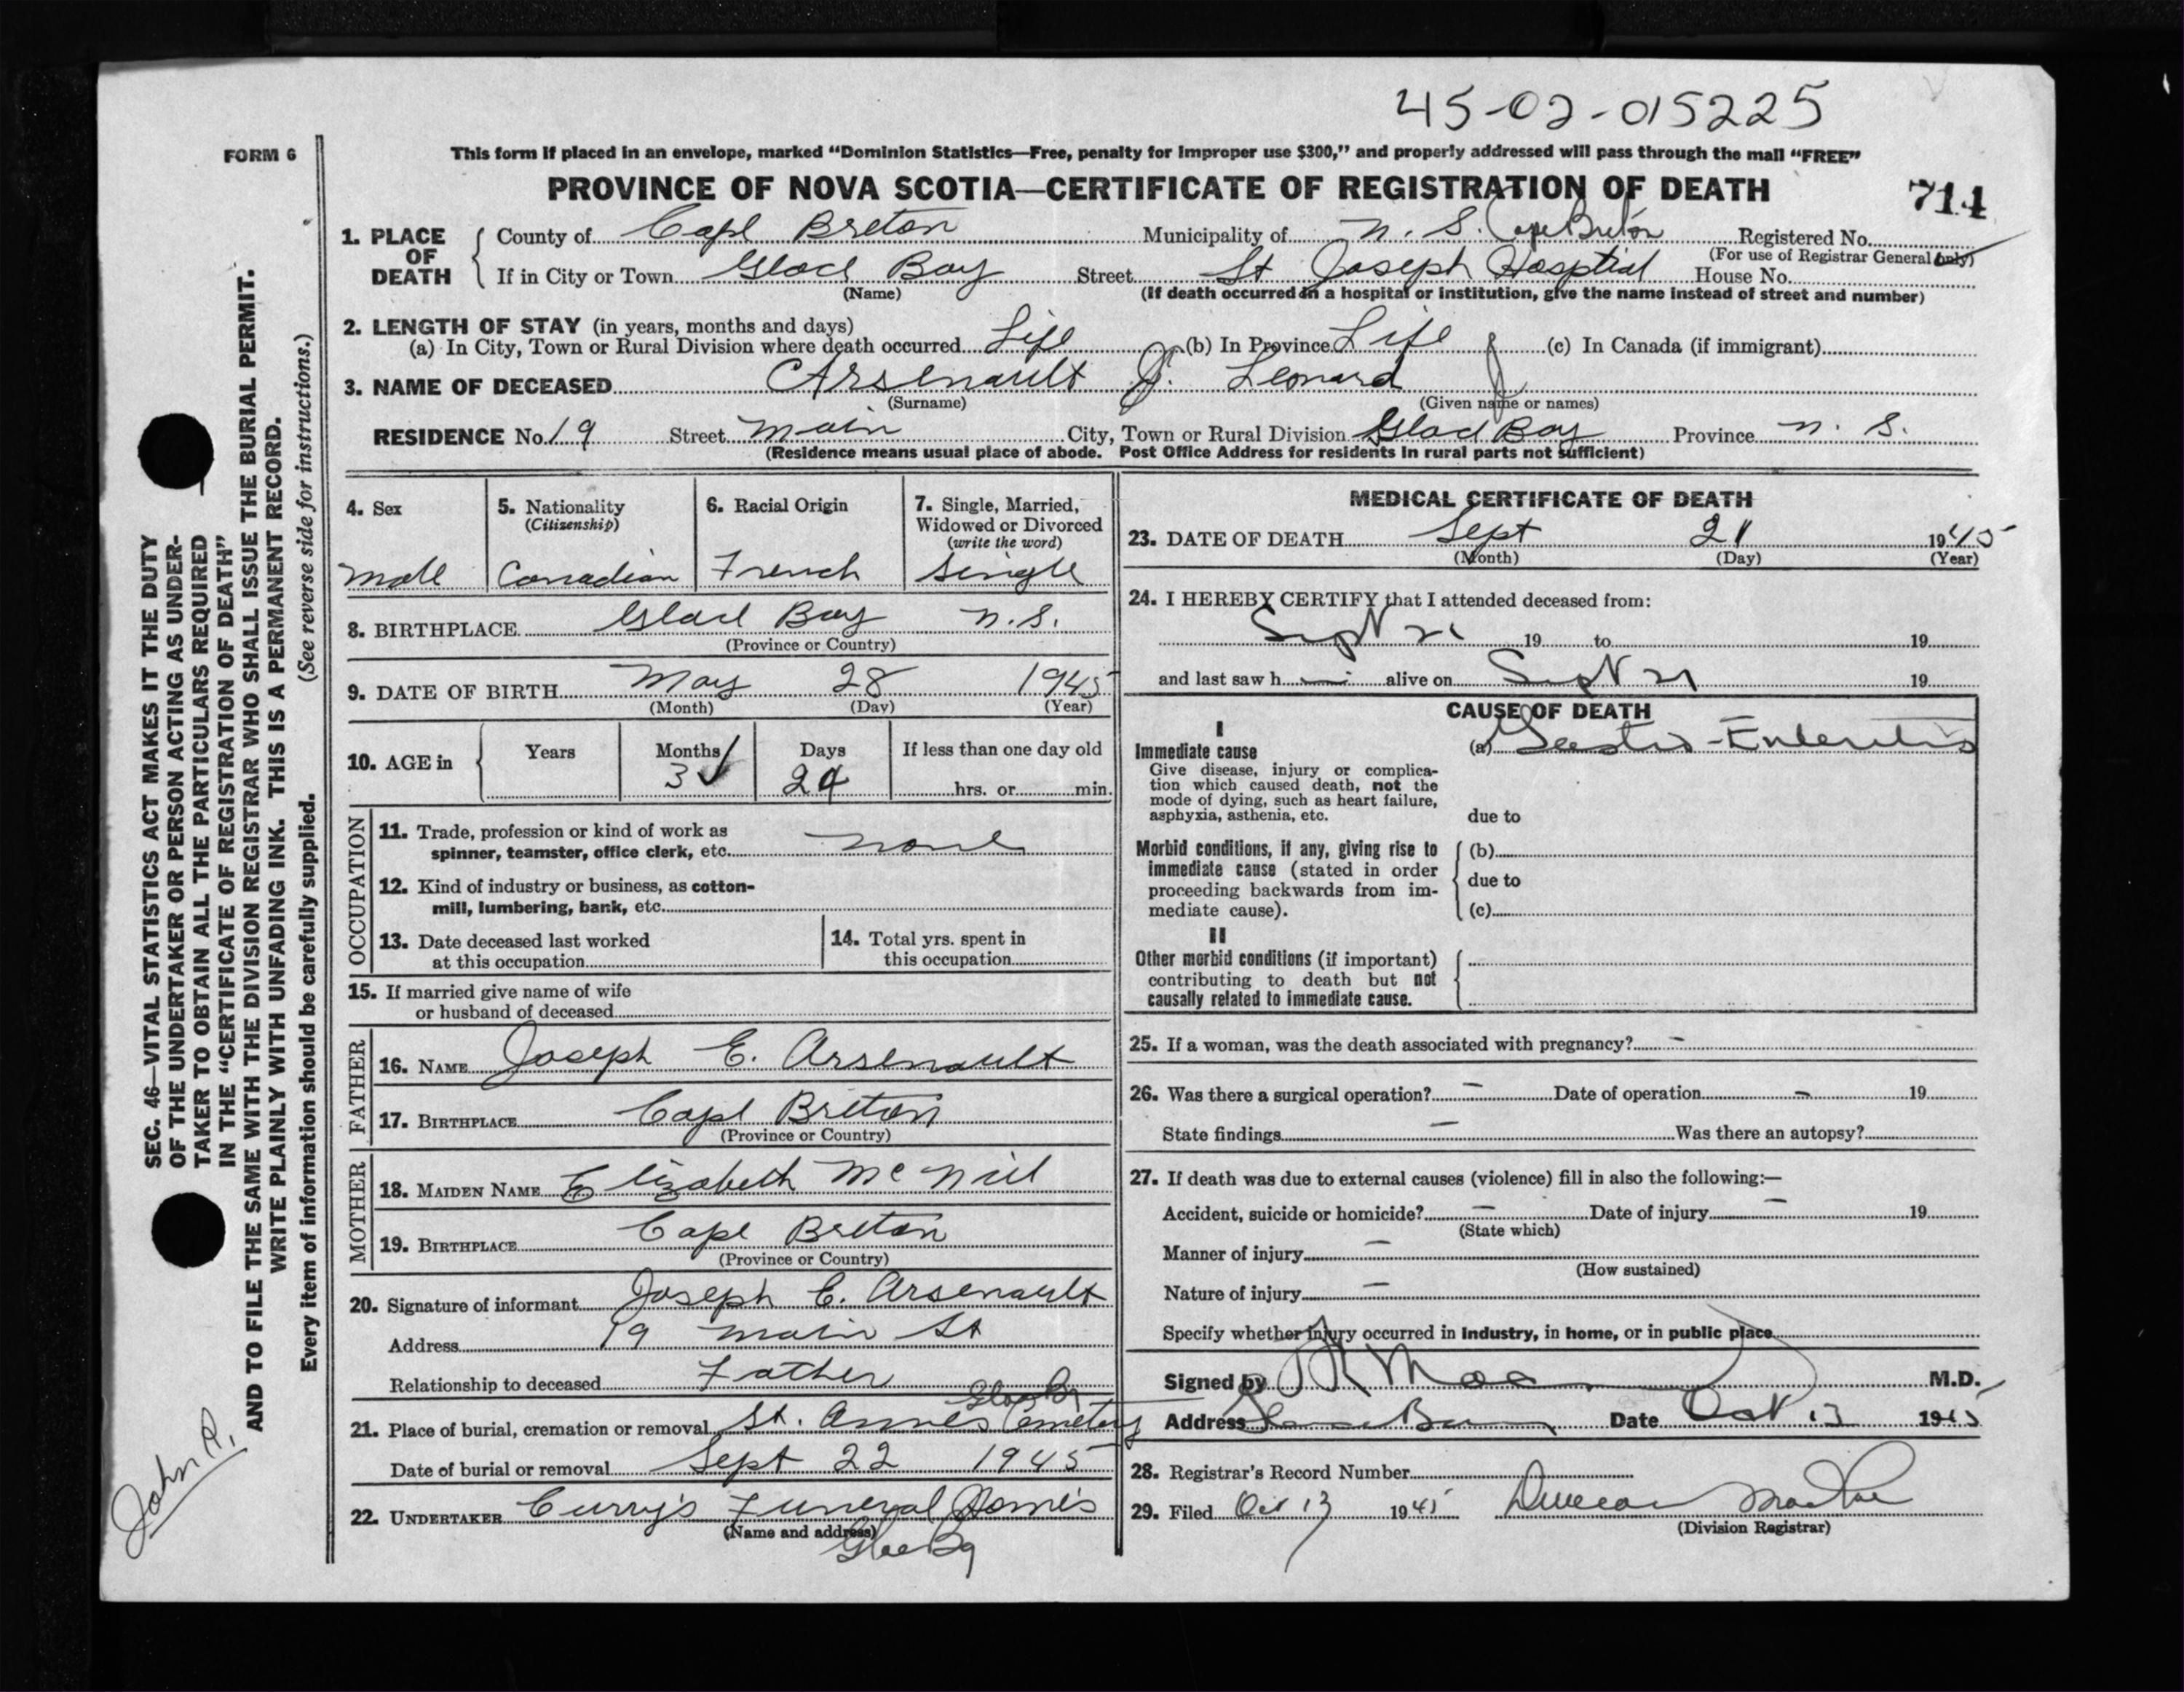 45-02-015225
FORM 6
This form if placed in an envelope, marked "Dominion Statistics—Free, penalty for improper use $300," and properly addressed will pass through the mail "FREE"
PROVINCE OF NOVA SCOTIA—CERTIFICATE OF REGISTRATION OF DEATH
714
1. PLACE OF DEATH County of Cape Breton Municipality of N. S. Cape Breton Registered No.
(For use of Registrar General only)
If in City or Town Glace Bay Street St Joseph Hosptial House No.
(Name) (If death occurred in a hospital or institution, give the name instead of street and number)
2. LENGTH OF STAY (in years, months and days)
(a) In City, Town or Rural Division where death occurred Life (b) In Province Life (c) In Canada (if immigrant)
3. NAME OF DECEASED Arsenault J. Leonard
(Surname) (Given name or names)
RESIDENCE No. 19 Street Main City, Town or Rural Division Glace Bay Province N. S.
(Residence means usual place of abode. Post Office Address for residents in rural parts not sufficient)
4. Sex
Male
5. Nationality
(Citizenship)
Canadian
6. Racial Origin
French
7. Single, Married,
Widowed or Divorced
(write the word)
Single
8. BIRTHPLACE Glace Bay N.S.
(Province or Country)
9. DATE OF BIRTH May 28 1945
(Month) (Day) (Year)
10. AGE in
Years Months Days If less than one day old
3 24 hrs. or min.
OCCUPATION
11. Trade, profession or kind of work as
spinner, teamster, office clerk, etc. none
12. Kind of industry or business, as cotton-
mill, lumbering, bank, etc.
13. Date deceased last worked
at this occupation
14. Total yrs. spent in
this occupation
15. If married give name of wife
or husband of deceased
FATHER
16. NAME Joseph E. Arsenault
17. BIRTHPLACE Cape Breton
(Province or Country)
MOTHER
18. MAIDEN NAME Elizabeth McNeil
19. BIRTHPLACE Cape Breton
(Province or Country)
20. Signature of informant Joseph E. Arsenault
Address 19 Main St
Relationship to deceased Father
Glace Bay
21. Place of burial, cremation or removal St. Anne's Cemetery
Date of burial or removal Sept 22 1945
22. UNDERTAKER Curry's Funeral Home's
(Name and address)
Glace Bay
MEDICAL CERTIFICATE OF DEATH
23. DATE OF DEATH Sept 21 1945
(Month) (Day) (Year)
24. I HEREBY CERTIFY that I attended deceased from:
Sept 21 19 to 19
and last saw h alive on Sept 21 19
CAUSE OF DEATH
I
Immediate cause
(a) Gastro-Enteritis
Give disease, injury or complica-
tion which caused death, not the
mode of dying, such as heart failure,
asphyxia, asthenia, etc.
due to
Morbid conditions, if any, giving rise to
immediate cause (stated in order
proceeding backwards from im-
mediate cause).
(b)
due to
(c)
II
Other morbid conditions (if important)
contributing to death but not
causally related to immediate cause.
25. If a woman, was the death associated with pregnancy? –
26. Was there a surgical operation? – Date of operation – 19
State findings – Was there an autopsy?
27. If death was due to external causes (violence) fill in also the following:—
Accident, suicide or homicide? – Date of injury – 19
(State which)
Manner of injury –
(How sustained)
Nature of injury –
Specify whether injury occurred in industry, in home, or in public place
Signed by M.D.
Address Glace Bay Date Oct 13 1945
28. Registrar's Record Number
29. Filed Oct 13 1945 Duncan
(Division Registrar)
SEC. 46—VITAL STATISTICS ACT MAKES IT THE DUTY
OF THE UNDERTAKER OR PERSON ACTING AS UNDER-
TAKER TO OBTAIN ALL THE PARTICULARS REQUIRED
IN THE "CERTIFICATE OF REGISTRATION OF DEATH"
AND TO FILE THE SAME WITH THE DIVISION REGISTRAR WHO SHALL ISSUE THE BURIAL PERMIT.
WRITE PLAINLY WITH UNFADING INK. THIS IS A PERMANENT RECORD.
Every item of information should be carefully supplied. (See reverse side for instructions.)
John R.